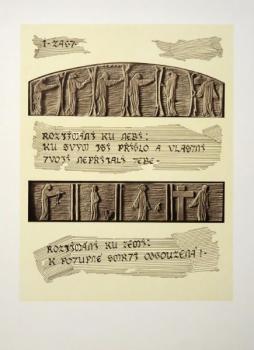 ROZJÍMÁNÍ KU NEBI:
KU SVÝM JSI PŘIŠLO A VLASTNÍ
TVOJI NEPŘIJALI TEBE-
ROZJÍMÁNÍ KU ZEMI:
K POTUPNÉ SMRTI ODSOUZENÁ!-